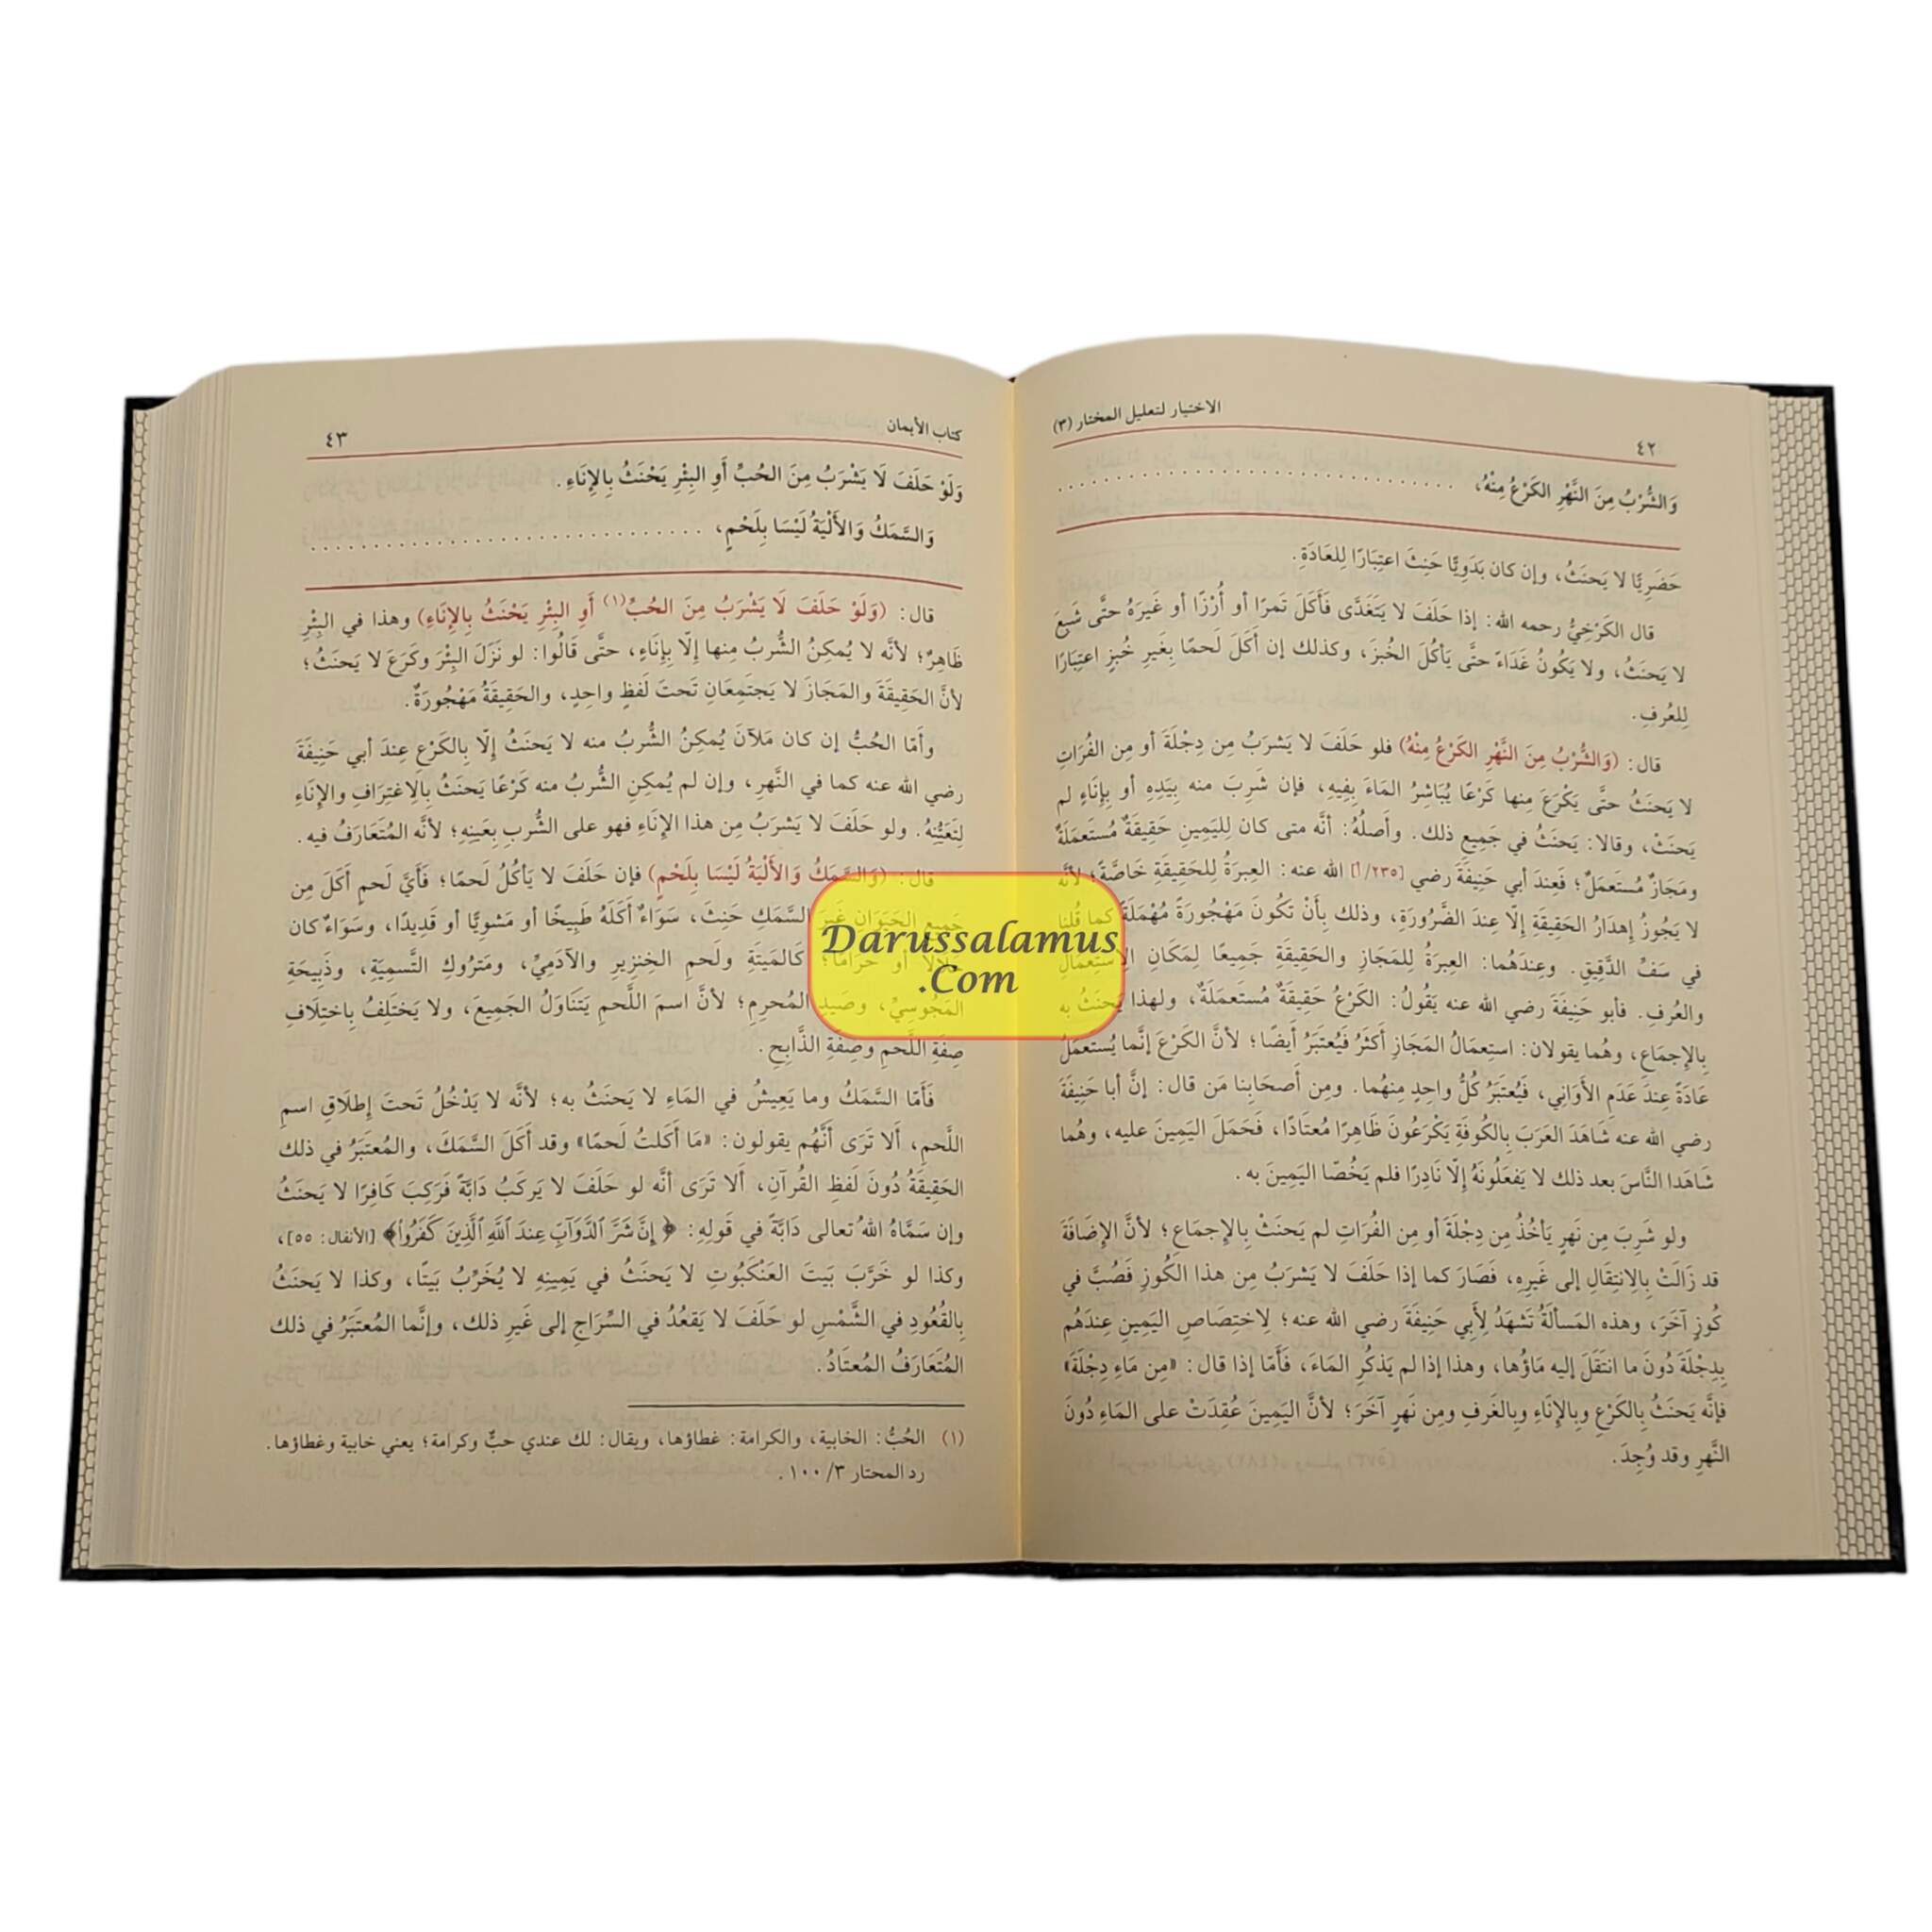 الاختيار لتعليل المختار (٣)
٤٢
وَالشُّرْبُ مِنَ النَّهْرِ الكَرْعُ مِنْهُ، . . . . . . . . . . . . . . . . . . . . . . . . . . . . . .
حَضَرِيًّا لا يَحنَثُ، وإن كان بَدَوِيًّا حَنِثَ اعتِبَارًا لِلعَادَةِ.
قال الكَرْخِيُّ رحمه الله: إذا حَلَفَ لا يَتَغَدَّى فَأَكَلَ تَمرًا أو أُرْزًا أو غَيرَهُ حتَّى شَبِعَ
لا يَحنَثُ، ولا يَكُونُ غَدَاءً حتَّى يَأكُلَ الخُبزَ، وكذلك إن أَكَلَ لَحمًا بِغَيرِ خُبزٍ اعتِبَارًا
لِلعُرفِ.
قال: (وَالشُّرْبُ مِنَ النَّهْرِ الكَرْعُ مِنْهُ) فلو حَلَفَ لا يَشرَبُ مِن دِجْلَةَ أو مِن الفُرَاتِ
لا يَحنَثُ حتَّى يَكْرَعَ مِنها كَرْعًا يُبَاشِرُ المَاءَ بِفِيهِ، فإن شَرِبَ منه بِيَدِهِ أو بِإِنَاءٍ لم
يَحنَثْ، وقالا: يَحنَثُ في جَمِيعِ ذلك. وأَصلُهُ: أنَّه متى كان لِليَمِينِ حَقِيقَةٌ مُستَعمَلَةٌ
ومَجَازٌ مُستَعمَلٌ؛ فَعِندَ أبي حَنِيفَةَ رضي [٢٣٥/أ] الله عنه: العِبرَةُ لِلحَقِيقَةِ خَاصَّةً؛ لأنَّه
لا يَجُوزُ إِهدَارُ الحَقِيقَةِ إلّا عِندَ الضَّرُورَةِ، وذلك بِأَنْ تَكُونَ مَهْجُورَةً مُهْمَلَةً كما قُلنا
في سَفِّ الدَّقِيقِ. وعِندَهُما: العِبرَةُ لِلمَجَازِ والحَقِيقَةِ جَمِيعًا لِمَكَانِ الِاستِعمَالِ
والعُرفِ. فأبو حَنِيفَةَ رضي الله عنه يَقُولُ: الكَرْعُ حَقِيقَةٌ مُستَعمَلَةٌ، ولهذا يَحنَثُ به
بِالإِجمَاعِ، وهُما يقولان: استِعمَالُ المَجَازِ أَكثَرُ فَيُعتَبَرُ أَيضًا؛ لأنَّ الكَرْعَ إنَّما يُستَعمَلُ
عَادَةً عِندَ عَدَمِ الأَوَانِي، فَيُعتَبَرُ كُلُّ واحِدٍ مِنهُما. ومِن أَصحَابِنا مَن قال: إنَّ أبا حَنِيفَةَ
رضي الله عنه شَاهَدَ العَرَبَ بِالكُوفَةِ يَكْرَعُونَ ظَاهِرًا مُعتَادًا، فَحَمَلَ اليَمِينَ عليه، وهُما
شَاهَدَا النَّاسَ بعد ذلك لا يَفعَلُونَهُ إلّا نَادِرًا فلم يَخُصَّا اليَمِينَ به.
ولو شَرِبَ مِن نَهرٍ يَأخُذُ مِن دِجْلَةَ أو مِن الفُرَاتِ لم يَحنَثْ بِالإِجمَاعِ؛ لأنَّ الإِضَافَةَ
قد زَالَتْ بِالِانتِقَالِ إلى غَيرِهِ، فَصَارَ كما إذا حَلَفَ لا يَشرَبُ مِن هذا الكُوزِ فَصُبَّ في
كُوزٍ آخَرَ، وهذه المَسأَلَةُ تَشهَدُ لِأَبِي حَنِيفَةَ رضي الله عنه؛ لِاختِصَاصِ اليَمِينِ عِندَهُم
بِدِجْلَةَ دُونَ ما انتَقَلَ إليه مَاؤُها، وهذا إذا لم يَذكُرِ المَاءَ، فَأَمّا إذا قال: «مِن مَاءِ دِجْلَةَ»
فإنَّه يَحنَثُ بِالكَرْعِ وبِالإِنَاءِ وبِالغَرفِ ومِن نَهرٍ آخَرَ؛ لأنَّ اليَمِينَ عُقِدَتْ على المَاءِ دُونَ
النَّهرِ وقد وُجِدَ.
كتاب الأيمان
٤٣
وَلَوْ حَلَفَ لَا يَشْرَبُ مِنَ الحُبِّ أَوِ البِئْرِ يَحْنَثُ بِالإِنَاءِ.
وَالسَّمَكُ وَالأَلْيَةُ لَيْسَا بِلَحْمٍ، . . . . . . . . . . . . . . . . . . . . . . . . . . . . . .
قال: (وَلَوْ حَلَفَ لَا يَشْرَبُ مِنَ الحُبِّ(١) أَوِ البِئْرِ يَحْنَثُ بِالإِنَاءِ) وهذا في البِئْرِ
ظَاهِرٌ؛ لأنَّه لا يُمكِنُ الشُّربُ مِنها إلّا بِإِنَاءٍ، حتَّى قَالُوا: لو نَزَلَ البِئْرَ وكَرَعَ لا يَحنَثُ؛
لأنَّ الحَقِيقَةَ والمَجَازَ لا يَجتَمِعَانِ تَحتَ لَفظٍ واحِدٍ، والحَقِيقَةُ مَهْجُورَةٌ.
وأَمّا الحُبُّ إن كان مَلآنَ يُمكِنُ الشُّربُ منه لا يَحنَثُ إلّا بِالكَرْعِ عِندَ أبي حَنِيفَةَ
رضي الله عنه كما في النَّهرِ، وإن لم يُمكِنِ الشُّربُ منه كَرْعًا يَحنَثُ بِالِاغتِرَافِ والإِنَاءِ
لِتَعَيُّنِهِ. ولو حَلَفَ لا يَشرَبُ مِن هذا الإِنَاءِ فهو على الشُّربِ بِعَينِهِ؛ لأنَّه المُتَعَارَفُ فيه.
قال: (وَالسَّمَكُ وَالأَلْيَةُ لَيْسَا بِلَحْمٍ) فإن حَلَفَ لا يَأكُلُ لَحمًا؛ فَأَيَّ لَحمٍ أَكَلَ مِن
جَمِيعِ الحَيَوَانِ غَيرَ السَّمَكِ حَنِثَ، سَوَاءٌ أَكَلَهُ طَبِيخًا أو مَشوِيًّا أو قَدِيدًا، وسَوَاءٌ كان
حَلَالًا أو حَرَامًا؛ كَالمَيتَةِ ولَحمِ الخِنزِيرِ والآدَمِيِّ، ومَترُوكِ التَّسمِيَةِ، وذَبِيحَةِ
المَجُوسِيِّ، وصَيدِ المُحرِمِ؛ لأنَّ اسمَ اللَّحمِ يَتَنَاوَلُ الجَمِيعَ، ولا يَختَلِفُ بِاختِلَافِ
صِفَةِ اللَّحمِ وصِفَةِ الذَّابِحِ.
فَأَمّا السَّمَكُ وما يَعِيشُ في المَاءِ لا يَحنَثُ به؛ لأنَّه لا يَدْخُلُ تَحتَ إِطلَاقِ اسمِ
اللَّحمِ، أَلا تَرَى أنَّهُم يقولون: «مَا أَكَلتُ لَحمًا» وقد أَكَلَ السَّمَكَ، والمُعتَبَرُ في ذلك
الحَقِيقَةُ دُونَ لَفظِ القُرآنِ، أَلا تَرَى أنَّه لو حَلَفَ لا يَركَبُ دَابَّةً فَرَكِبَ كَافِرًا لا يَحنَثُ
وإن سَمَّاهُ اللهُ تعالى دَابَّةً في قَولِهِ: ﴿إِنَّ شَرَّ ٱلدَّوَآبِّ عِندَ ٱللَّهِ ٱلَّذِينَ كَفَرُوا۟﴾ [الأنفال: ٥٥]،
وكذا لو خَرَّبَ بَيتَ العَنكَبُوتِ لا يَحنَثُ في يَمِينِهِ لا يُخَرِّبُ بَيتًا، وكذا لا يَحنَثُ
بِالقُعُودِ في الشَّمْسِ لو حَلَفَ لا يَقعُدُ في السِّرَاجِ إلى غَيرِ ذلك، وإنَّما المُعتَبَرُ في ذلك
المُتَعَارَفُ المُعتَادُ.
(١) الحُبُّ: الخابية، والكرامة: غطاؤها، ويقال: لك عندي حبٌّ وكرامة؛ يعني خابية وغطاؤها.
رد المحتار ٣/ ١٠٠.
Darussalamus
.Com